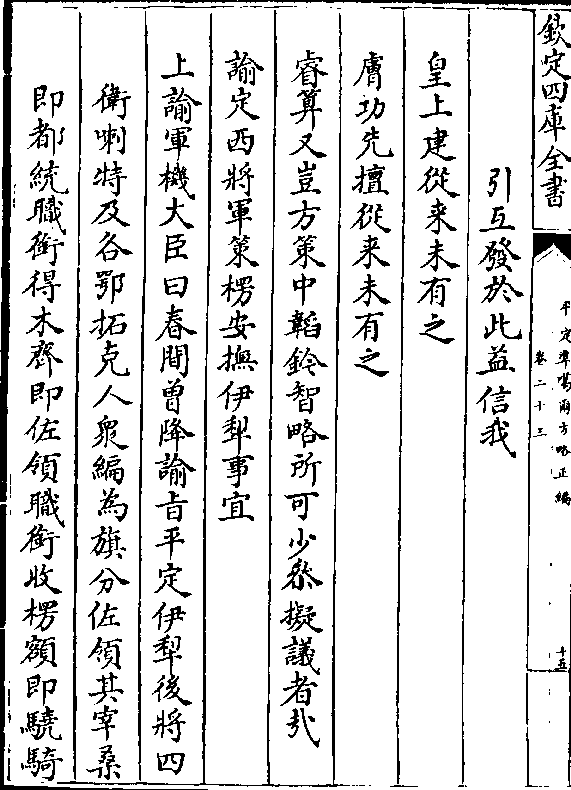 欽定四庫全書
平定準噶爾方略正編
卷二十三
十五
引互發於此益信我
皇上建從来未有之
膚功先擅從来未有之
睿算又豈方策中韜鈐智略所可少叅擬議者哉
諭定西將軍策楞安撫伊犁事宜
上諭軍機大臣曰春間曽降諭㫖平定伊犁後將四
衛喇特及各鄂拓克人衆編為旗分佐領其宰桑
即都統職銜得木齊即佐領職銜收楞額即驍騎